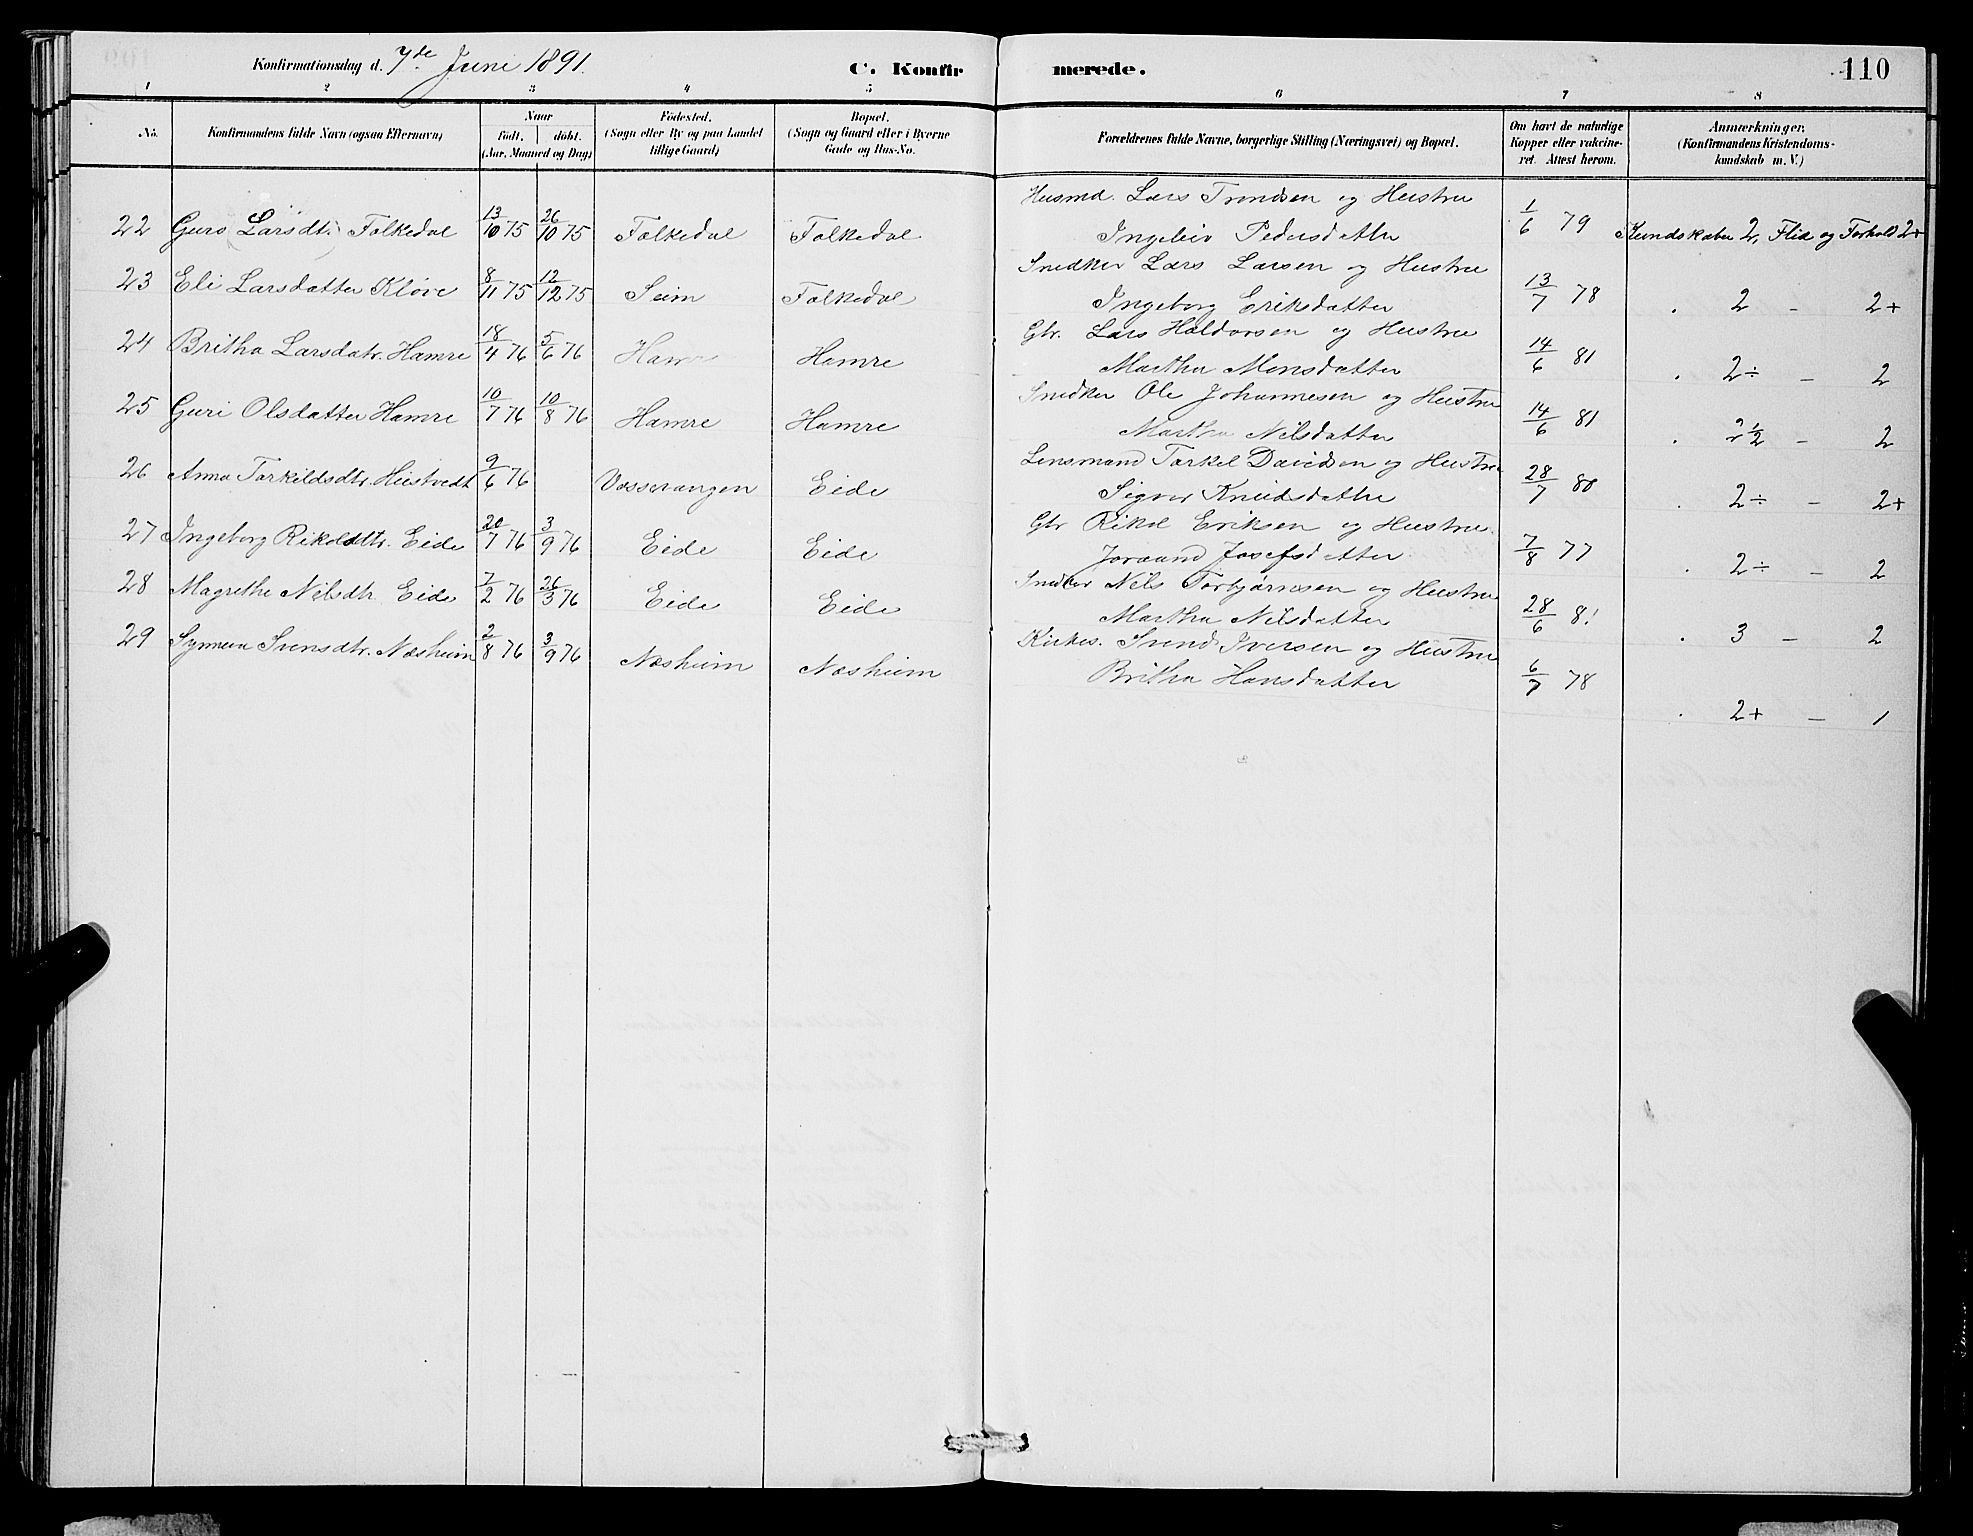 Konfirmationsdag d. 7de Juni 1891. C. Konfirmerede. 110
1 2 3 4 5 6 7 8
No. Konfirmandens fulde Navn (ogsaa Efternavn) Naar født. døbt. (Aar, Maaned og Dag) Fødested. (Sogn eller By og paa Landet tillige Gaard) Bopæl. (Sogn og Gaard eller i Byerne Gade og Hus-No. Forældrenes fulde Navne, borgerlige Stilling (Næringsvei) og Bopæl. Om havt de naturlige Kopper eller vakcineret. Attest herom. Anmærkninger. (Konfirmandens Kristendomskundskab m. V.)
22 Guro (Larsdt.) Folkedal 13/10 75 26/10 75 Folkedal Folkedal Husmd. Lars Trondsen og Hustru Ingeleiv Pedersdatter 1/6 79 Kundskaber 2, Flid og Forhold 2+
23 Eli Larsdatter Kløve 8/11 75 12/12 75 Seim Folkedal Snedker Lars Larsen og Hustru Ingeborg Eriksdatter 13/7 78 . 2 - 2+
24 Britha Larsdatr. Hamre 18/4 76 5/6 76 Hamre Hamre Gbr. Lars Haldorsen og Hustru Martha Monsdatter 14/6 81 . 2÷ - 2
25 Guri Olsdatter Hamre 10/7 76 10/8 76 Hamre Hamre Snedker Ole Johannesen og Hustru Martha Nilsdatter 14/6 81 . 2½ - 2
26 Anna Torkildsdtr. Hustvedt 9/6 76 Vossevangen Eide Lensmand Torkel Davidsen og Hustru Sigvor Knudsdatter 28/7 80 . 2÷ - 2+
27 Ingeborg Rikoldtr. Eide 20/7 76 3/9 76 Eide Eide Gbr Rikol Eriksen og Hustru Joraand Josefsdatter 7/8 77 . 2÷ - 2
28 Magrethe Nilsdtr Eide 7/2 76 26/3 76 Eide Eide Snedker Nils Torbjørnsen og Hustru Martha Nilsdatter 28/6 81 . 3 - 2
29 Synneva Svensdtr. Næsheim 2/8 76 3/9 76 Næsheim Næsheim Kirkes. Svend Iversen og Hustru Britha Hansdatter 6/7 78 . 2+ - 1